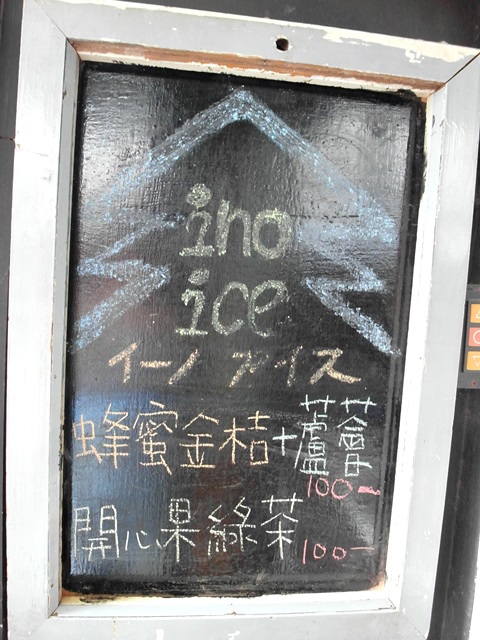 ino
ice
イーノ アイス
蜂蜜金桔+蘆薈
100-
開心果綠茶 100-